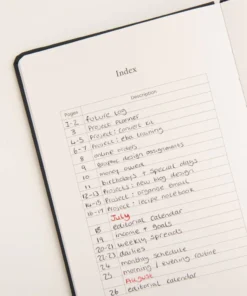 Index
Pages Description
1-2 future log
3 Project planner
4-5 Project: convert kit
6-7 Project: eba training
8 online orders
9 graphic design assignments
10 money owed
11 birthdays + special days
12-13 Projects: new blog design
14-15 Project: organise email
16-17 Project: recipe notebook
July
18 editorial calendar
19 income + goals
20-21 weekly spreads
22-23 dailies
24 monthly schedule
25 morning / evening routine
August
26 editorial calendar